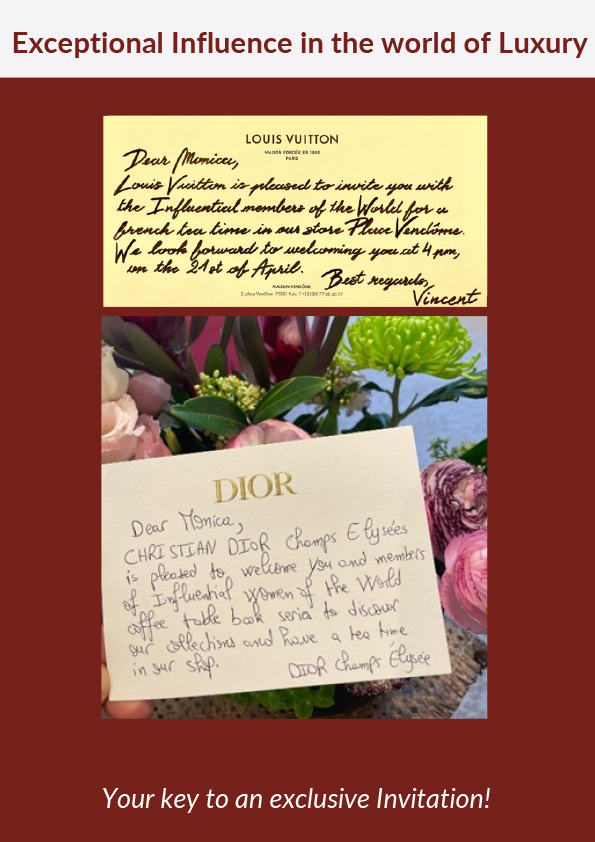 Exceptional Influence in the world of Luxury
LOUIS VUITTON
MAISON FONDÉE EN 1854
PARIS
Dear Monica,
Louis Vuitton is pleased to invite you with
the Influential members of the World for a
french tea time in our store Place Vendôme.
We look forward to welcoming you at 4 pm,
on the 21st of April.
Best regards,
Vincent
MAISON VENDÔME
2, place Vendôme 75001 Paris
DIOR
Dear Monica,
CHRISTIAN DIOR Champs Elysées
is pleased to welcome you and members
of Influential Women of the World
coffee table book series to discover
our collections and have a tea time
in our shop.
DIOR Champs Élysée
Your key to an exclusive Invitation!